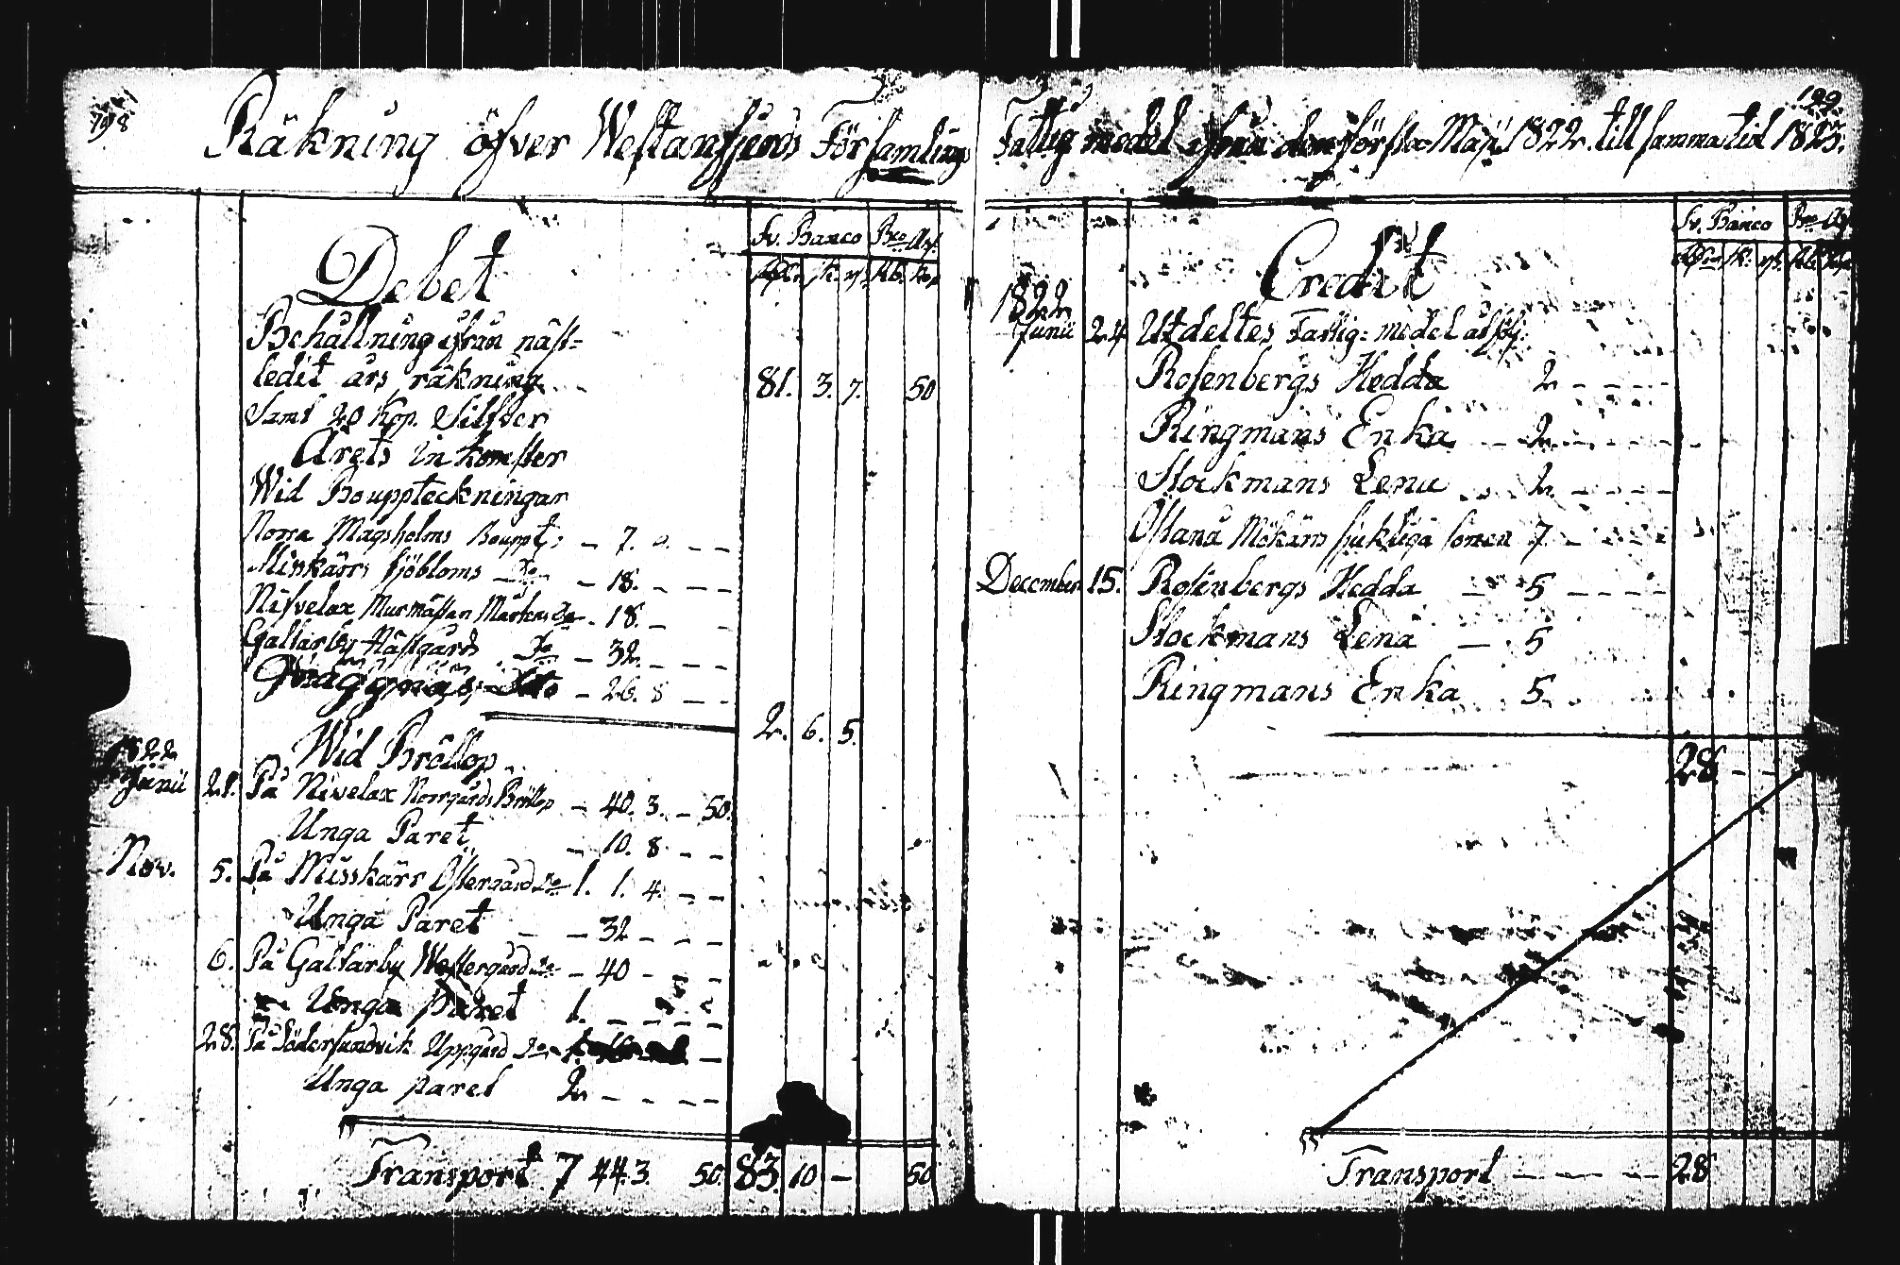 198
Räkning öfver Westanfjerds Församlings
Debet
Sv. Banco Bco Asf.
Rdr. sk. rst. Rb. Kop
Behållning ifrån näst-
ledit års räkning 81. 3. 7. 50
Samt 20 Kop. Silfver
Årets inkomster
Wid Bouppteckningar
Norra Magsholms Bouppt: - 7. - -
Misskärs Sjöbloms Do - 18. - -
Nifvelax Murmästar Do - 18. - -
Galtarby Nästgårds Do - 32. - - -
Do - 26. 8 - -
2. 6. 5.
Wid Bröllop
1822
Junii 21. På Nivelax Norrgårds Bröllop - 40. 3. - 50.
Unga Paret - 10. 8 - -
Nov. 5. På Misskärr Östergård Do 1. 1. 4. - -
Unga Paret - - 32 - - -
6. På Galtarby Westergård Do - 40 - - -
Unga Paret 1. - - - -
28. På Södersundvik Uppgård Do
Unga paret 2 - - - -
Transport 7 44. 3. 50. 83. 10 - 50
199
Fattig medel ifrån den första Maji 1822. till samma tid 1823.
Credit
Sv. Banco Bco Asf.
Rdr sk. rst. Rb. Kop
1822
Junii 24 Utdeltes Fattig-medel
Rosenbergs Hedda 2 - - - -
Ringmans Enka - 2 - - - -
Stockmans Lena 2 - - - -
Östanå sjukliga sonen 7 - - - -
December 15. Rosenbergs Hedda - 5 - - - -
Stockmans Lena - 5
Ringmans Enka 5
28 - -
Transport - - - - 28